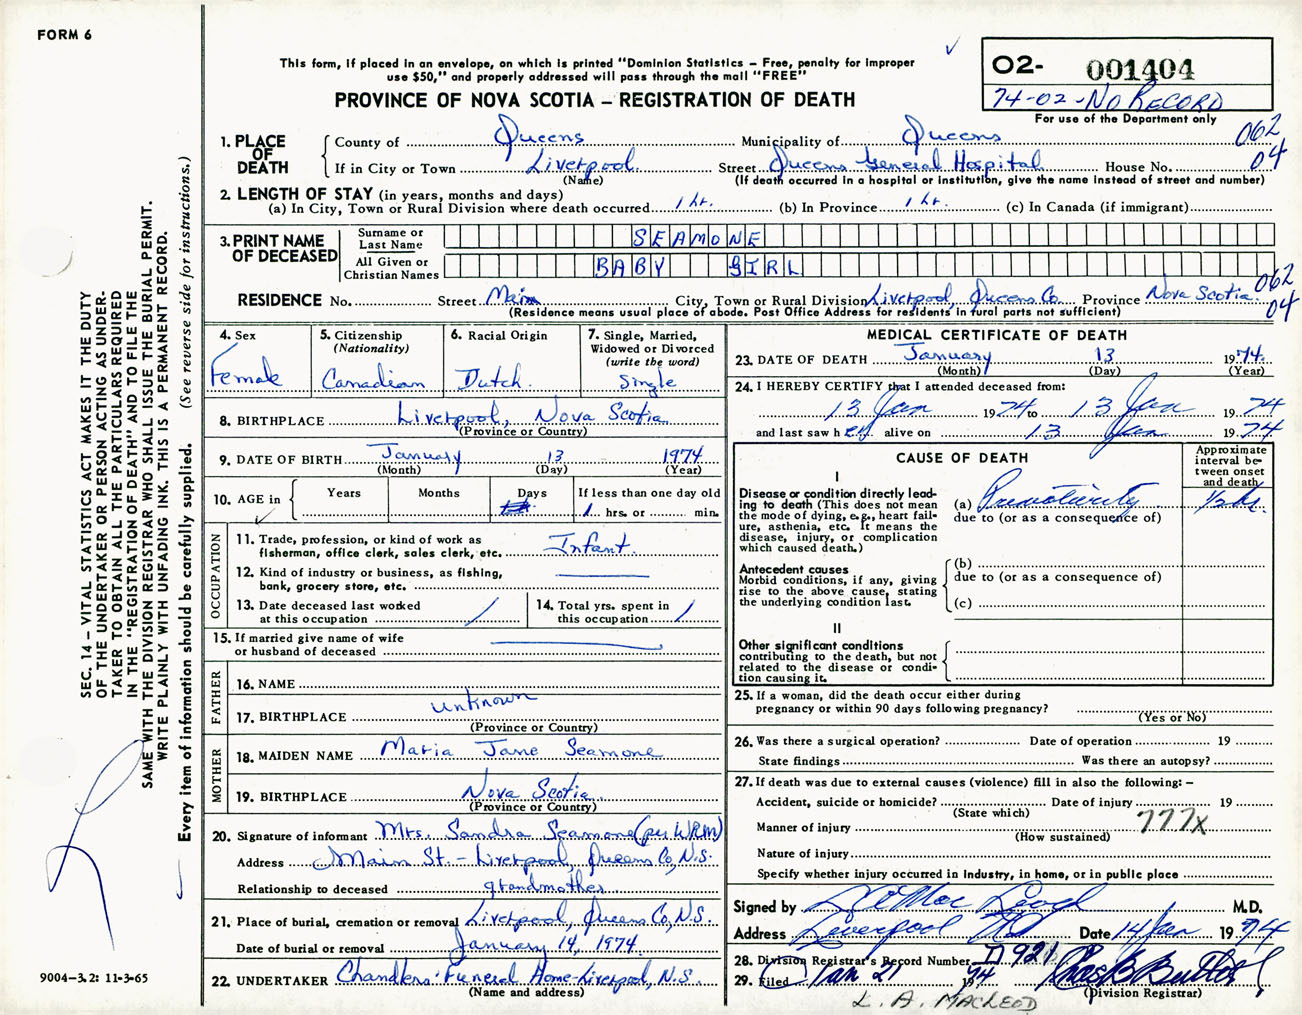 FORM 6
This form, if placed in an envelope, on which is printed "Dominion Statistics – Free, penalty for improper
use $50," and properly addressed will pass through the mail "FREE"
PROVINCE OF NOVA SCOTIA – REGISTRATION OF DEATH
02- 001404
74-02-No RECORD
For use of the Department only
1. PLACE OF DEATH
County of Queens Municipality of Queens 062
If in City or Town Liverpool Street Queens General Hospital House No. 04
(Name) (If death occurred in a hospital or institution, give the name instead of street and number)
2. LENGTH OF STAY (in years, months and days)
(a) In City, Town or Rural Division where death occurred 1 hr. (b) In Province 1 hr. (c) In Canada (if immigrant)
3. PRINT NAME OF DECEASED
Surname or Last Name SEAMONE
All Given or Christian Names BABY GIRL
RESIDENCE No. Street Main City, Town or Rural Division Liverpool, Queens Co. Province Nova Scotia. 062 04
(Residence means usual place of abode. Post Office Address for residents in rural parts not sufficient)
4. Sex
Female
5. Citizenship
(Nationality)
Canadian
6. Racial Origin
Dutch.
7. Single, Married,
Widowed or Divorced
(write the word)
Single
8. BIRTHPLACE Liverpool, Nova Scotia
(Province or Country)
9. DATE OF BIRTH January 13 1974
(Month) (Day) (Year)
10. AGE in Years Months Days If less than one day old
1 hrs. or min.
OCCUPATION
11. Trade, profession, or kind of work as
fisherman, office clerk, sales clerk, etc. Infant.
12. Kind of industry or business, as fishing,
bank, grocery store, etc.
13. Date deceased last worked
at this occupation
14. Total yrs. spent in
this occupation
15. If married give name of wife
or husband of deceased
FATHER
16. NAME
unknown
17. BIRTHPLACE
(Province or Country)
MOTHER
18. MAIDEN NAME Maria Jane Seamone
19. BIRTHPLACE Nova Scotia
(Province or Country)
20. Signature of informant Mrs. Sandra Seamone (per WRM)
Address Main St. - Liverpool, Queens Co, N.S.
Relationship to deceased grandmother
21. Place of burial, cremation or removal Liverpool, Queens Co, N.S.
Date of burial or removal January 14, 1974
22. UNDERTAKER Chandlers' Funeral Home-Liverpool, N.S.
(Name and address)
MEDICAL CERTIFICATE OF DEATH
23. DATE OF DEATH January 13 1974.
(Month) (Day) (Year)
24. I HEREBY CERTIFY that I attended deceased from:
13 Jan 1974 to 13 Jan 1974
and last saw her alive on 13 Jan 1974
CAUSE OF DEATH
Approximate
interval be-
tween onset
and death
I
Disease or condition directly lead-
ing to death (This does not mean
the mode of dying, e.g., heart fail-
ure, asthenia, etc. It means the
disease, injury, or complication
which caused death.)
(a) Prematurity ½ hr.
due to (or as a consequence of)
Antecedent causes
Morbid conditions, if any, giving
rise to the above cause, stating
the underlying condition last.
(b)
due to (or as a consequence of)
(c)
II
Other significant conditions
contributing to the death, but not
related to the disease or condi-
tion causing it.
25. If a woman, did the death occur either during
pregnancy or within 90 days following pregnancy?
(Yes or No)
26. Was there a surgical operation? Date of operation 19
State findings Was there an autopsy?
27. If death was due to external causes (violence) fill in also the following: –
Accident, suicide or homicide? Date of injury 19
(State which)
Manner of injury 777X
(How sustained)
Nature of injury
Specify whether injury occurred in industry, in home, or in public place
Signed by M.D.
Address Liverpool NS Date 14 Jan 1974
28. Division Registrar's Record Number
29. Filed Jan 21 1974
(Division Registrar)
L. A. MACLEOD
SEC. 14 – VITAL STATISTICS ACT MAKES IT THE DUTY
OF THE UNDERTAKER OR PERSON ACTING AS UNDER-
TAKER TO OBTAIN ALL THE PARTICULARS REQUIRED
IN THE "REGISTRATION OF DEATH" AND TO FILE THE
SAME WITH THE DIVISION REGISTRAR WHO SHALL ISSUE THE BURIAL PERMIT.
WRITE PLAINLY WITH UNFADING INK. THIS IS A PERMANENT RECORD.
Every item of information should be carefully supplied. (See reverse side for instructions.)
9004-3.2: 11-3-65